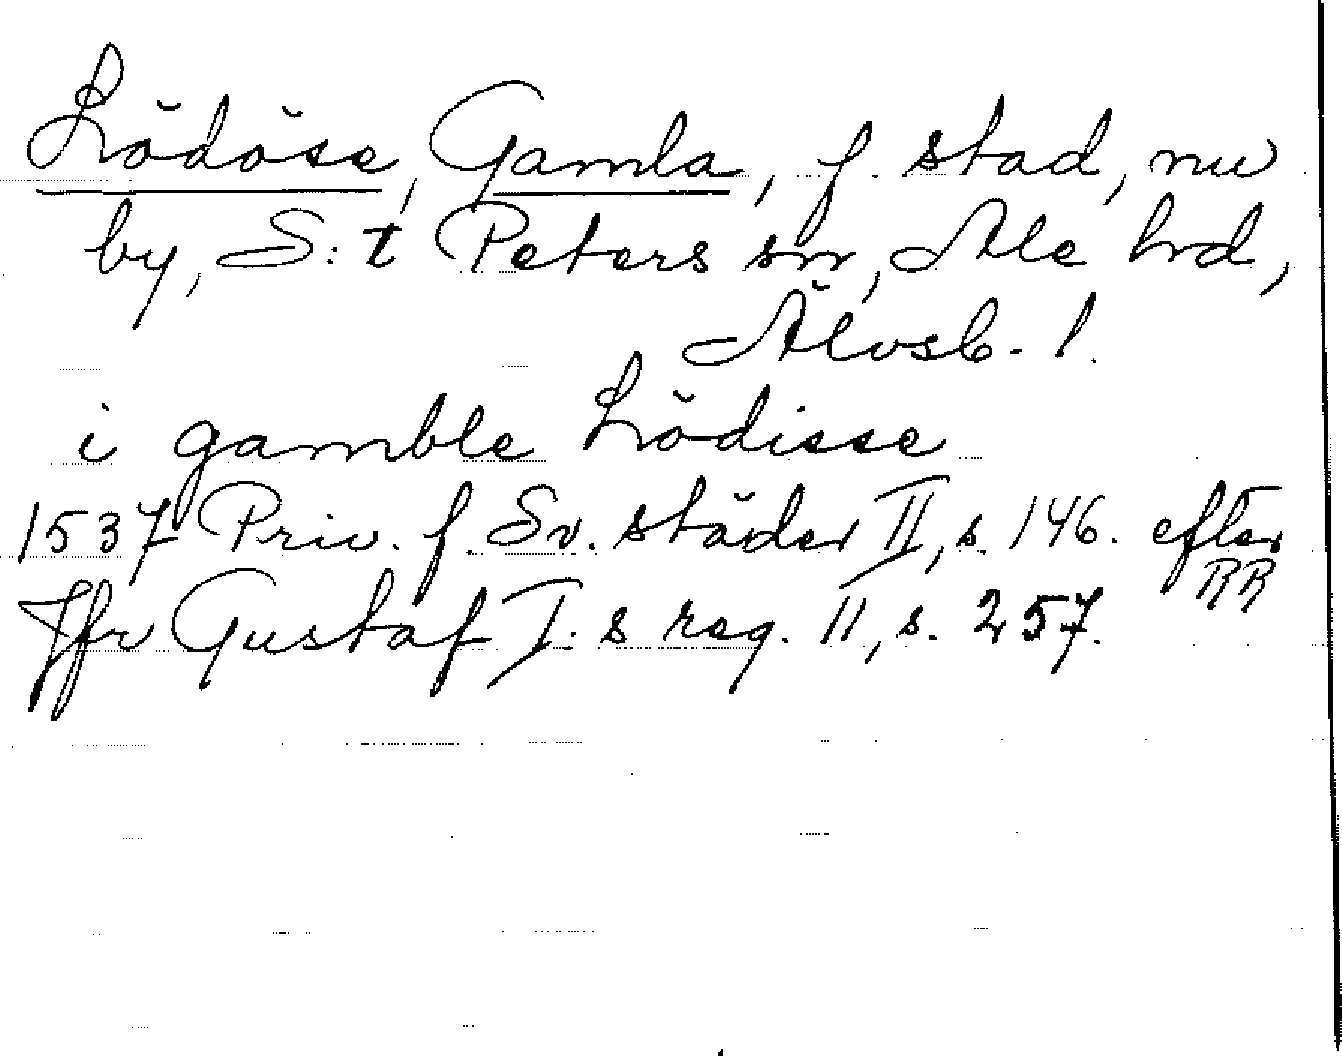 Lödöse, Gamla, f. stad, nu
by, S:t Peters sn, Ale hrd,
Älvsb. l.
i gamble Lödisse
1537 Priv. f. Sv. städer II, s. 146. efter
RR
Jfr Gustaf I:s reg. 11, s. 257.